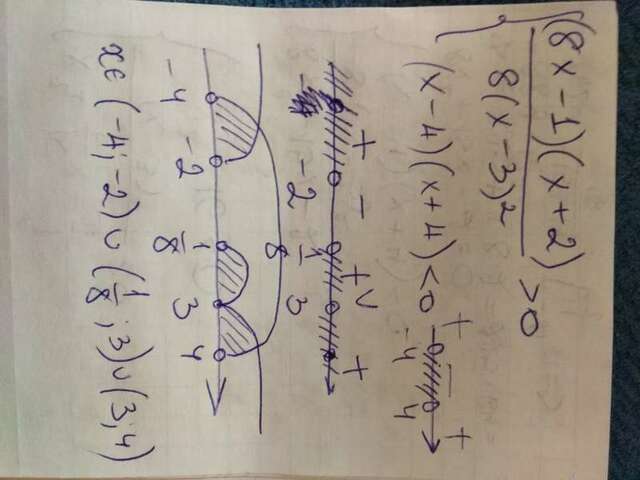 (8x-1)(x+2)
8(x-3)² >0
(x-4)(x+4)<0 + - +
-4 4
+ - + ∨ +
-2 1/8 3
8
-4 -2 1/8 3 4
x∈ (-4;-2)∪(1/8;3)∪(3;4)